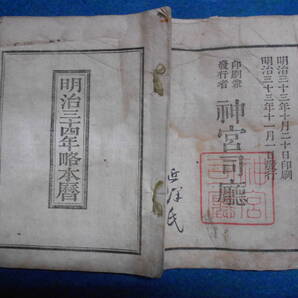 明治三十四年略本暦
明治三十三年十月二十日印刷
明治三十三年十一月一日發行
印刷兼
發行者
神宮司廳